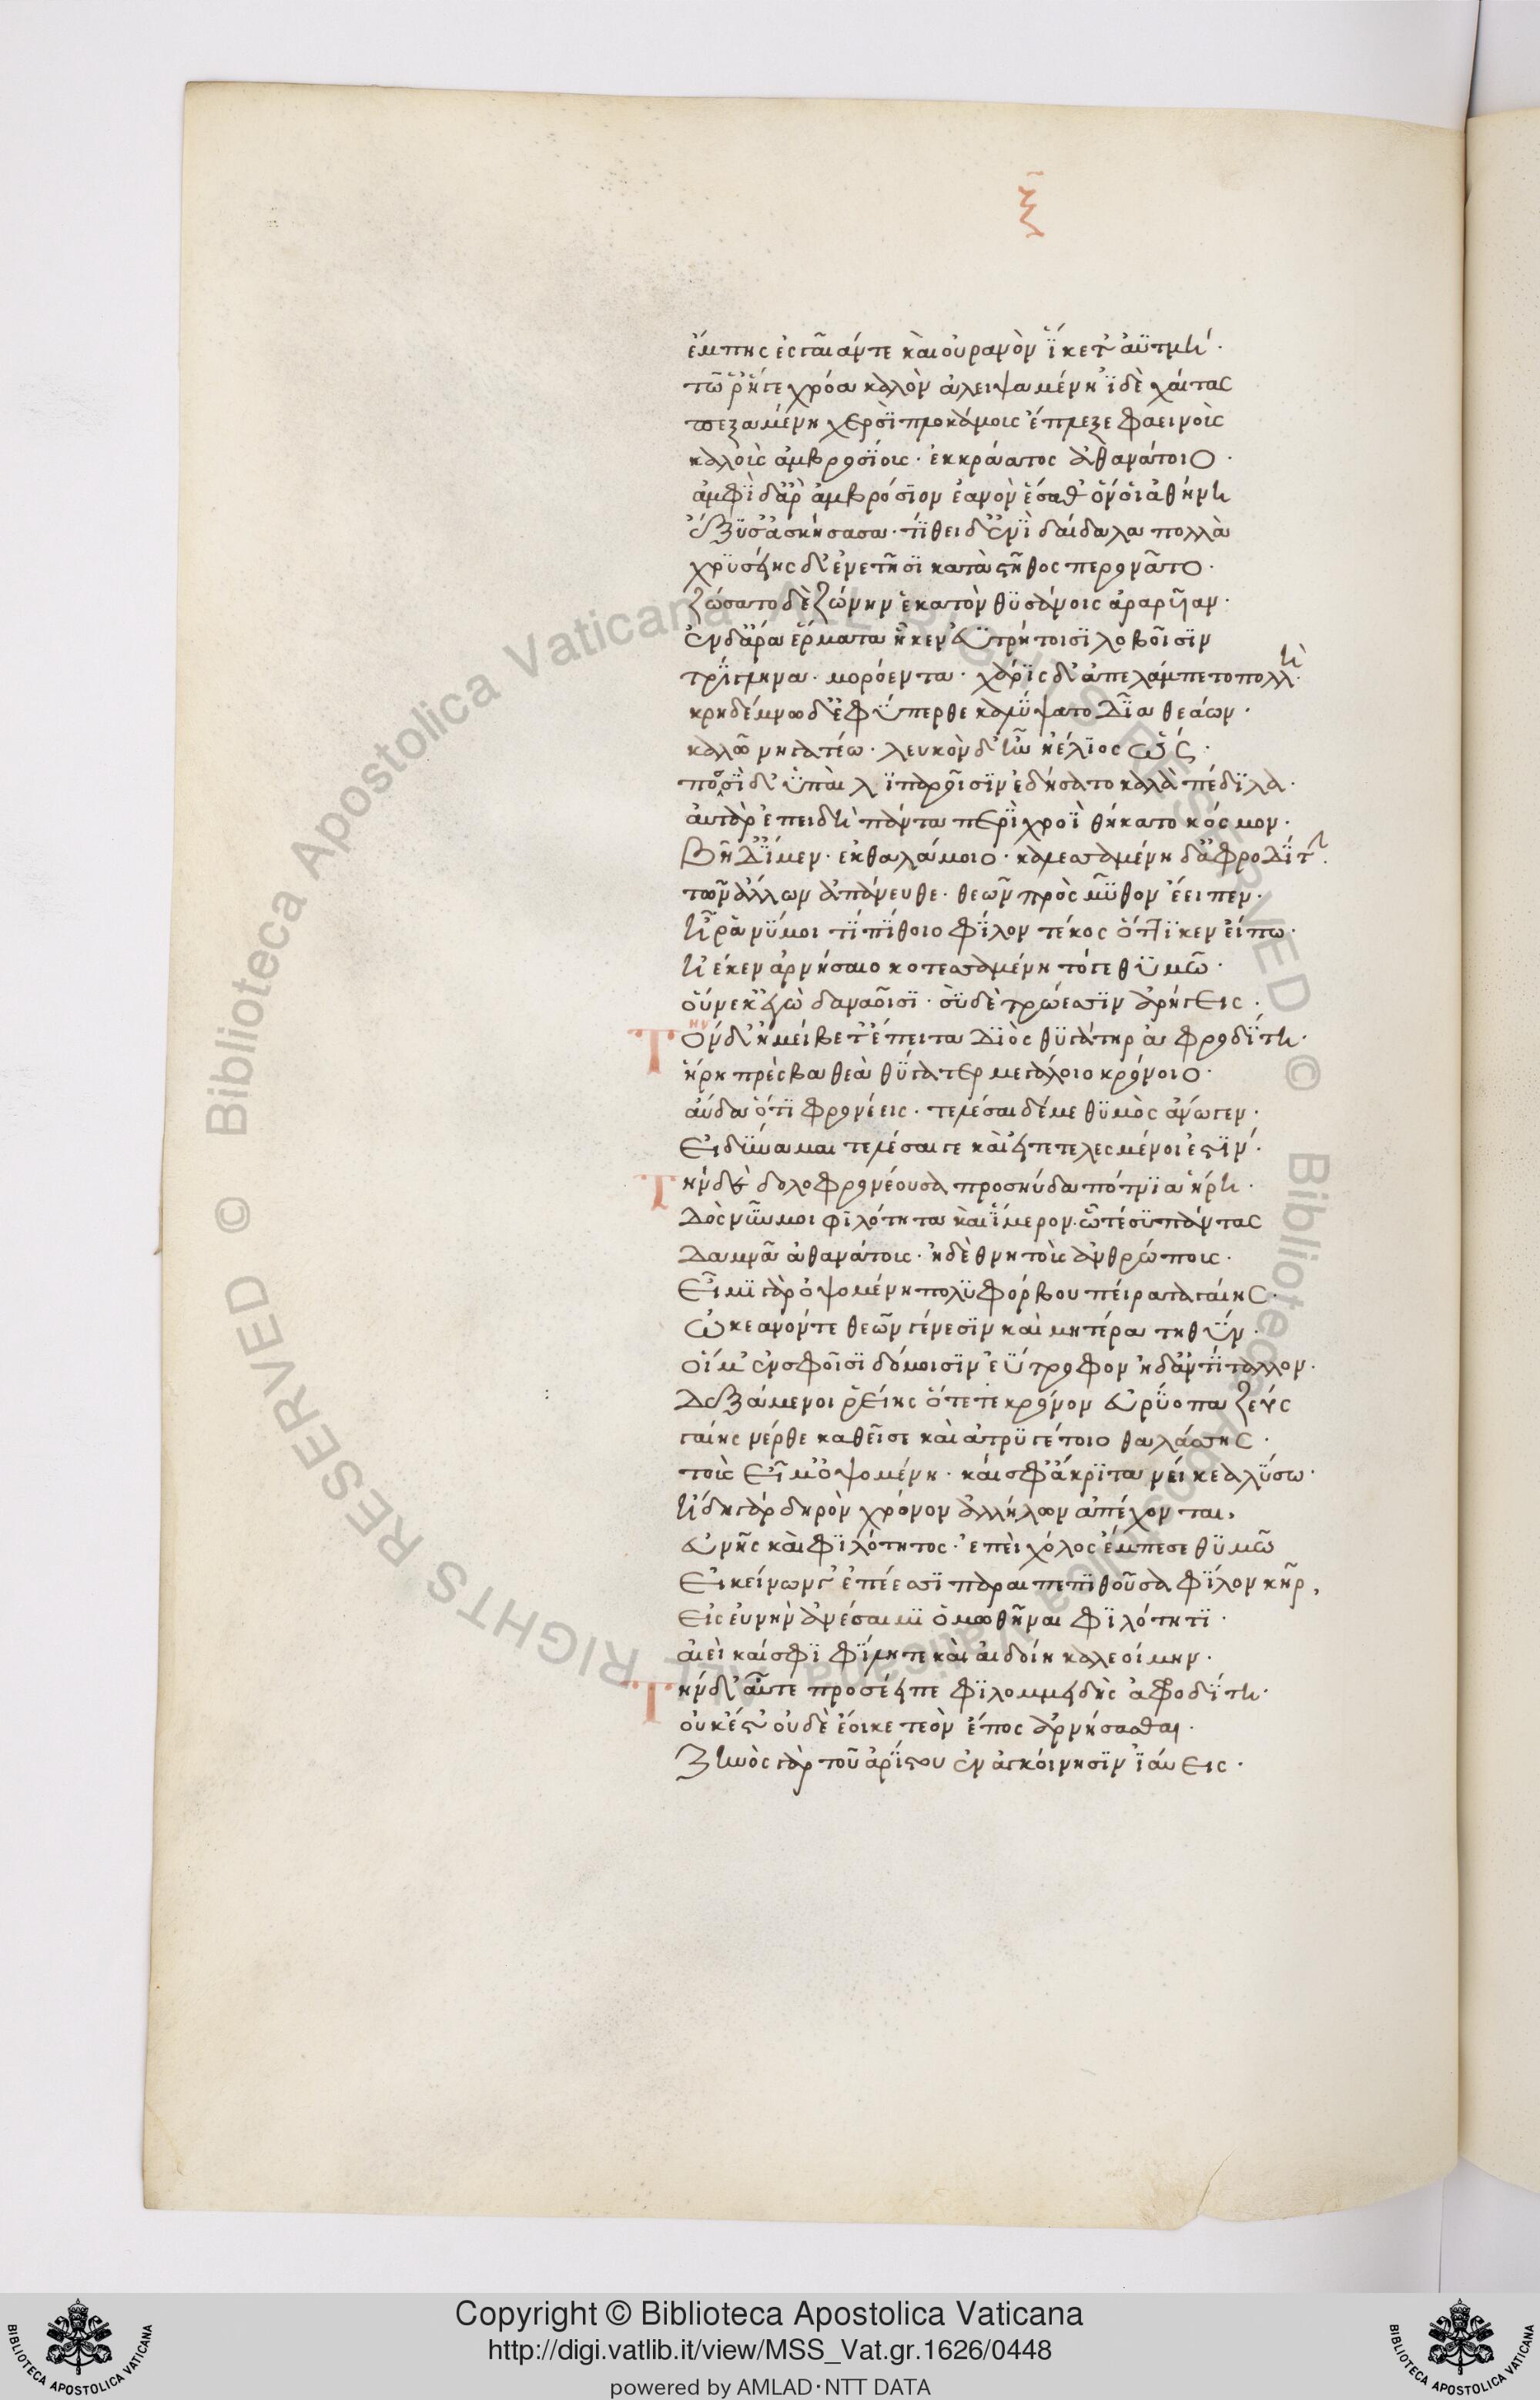 ξ
ἔμπης ἐς γαῖάν τε καὶ οὐρανὸν ἵ̈κετ' ἀϋτμή·
τῷ ῥ' ἥγε χρόα καλὸν ἀλειψαμένη ἰ̈δὲ χαίτας
πεξαμένη χερσὶ̈ πλοκάμοις ἔπλεξε φαεινοὶς
καλοὶς ἀμβροσί̈οις· ἐκ κράατος ἀθανάτοιο·
ἀμφὶ̈ δ' ἄρ' ἀμβρόσϊον ἑανὸν ἕσαθ' ὅν οἱ ἀθήνη
ἔξϋσ' ἀσκήσασα· τί̈θει δ' ἐνὶ̈ δαίδαλα πολλὰ
χρϋσείης δ' ἐνετῆσϊ κατὰ στῆθος περονᾶτο·
ζώσατο δὲ ζώνην ἑκατὸν θϋσάνοις ἀραρυῖαν·
ἐν δ' ἄρα ἕρματα ἧκεν ἐϋτρήτοισϊ λοβοῖσϊν
τρί̈γληνα· μορόεντα· χάρϊς δ' ἀπελάμπετο πολλή·
κρηδέμνω δ' ἐφύ̈περθε καλύ̈ψατο δῖ̈α θεάων·
καλῶ νηγατέω· λευκὸν δ' ἦν ἠέλϊος ὥς·
ποσσὶ̈ δ' ὑ̈παὶ λϊπαροῖσϊν ἐδήσατο καλὰ πέδϊλα·
αὐτὰρ ἐπειδὴ πάντα περὶ̈ χροὶ̈ θήκατο κόσμον·
βῆ δ' ἴ̈μεν· ἐκ θαλάμοιο· καλεσσαμένη δ' ἀφροδί̈την·
τῶν ἄλλων ἀπάνευθε· θεῶν πρὸς μῦ̈θον ἔειπεν·
ἦ ῥά νύ̈ μοι τί̈ πί̈θοιο φί̈λον τέκος ὅττϊ κεν εἴπω·
ἠέ κεν ἀρνήσαιο κοτεσσαμένη τόγε θϋμῶ·
οὕνεκ' ἐγὼ δαναοῖσϊ· σὺ̈ δὲ τρώεσσϊν ἀρήγεις·
Τὸν δ' ἠμείβετ' ἔπειτα δϊὸς θϋγάτηρ ἀφροδί̈τη·
ην
ἥρη πρέσβα θεὰ θύ̈γατερ μεγάλοιο κρόνοιο·
αὔδα ὅτϊ φρονέεις· τελέσαι δέ με θϋμὸς ἀνώγεν·
εἰ δύ̈ναμαι τελέσαι γε καὶ εἰ τετελεσμένον ἐστϊν·
Τὴν δὲ δολοφρονέουσα προσηύδα πότνϊα ἥρη·
δὸς νῦ̈ν μοι φϊλότητα καὶ ἵ̈μερον· ὧτε σϋ πάντας
δαμνᾶ ἀθανάτοις· ἠδὲ θνητοὶς ἀνθρώποις·
εἶμϊ γὰρ ὀψομένη πολϋφόρβου πείρατα γαίης·
ὠκεανόν τε θεῶν γένεσϊν καὶ μητέρα τηθύ̈ν·
οἵ μ' ἐν σφοῖσϊ δόμοισϊν ἐϋτροφον ἠδ' ἀτί̈ταλλον·
δεξάμενοι ῥείης ὅτε τε κρόνον εὐρύ̈οπα ζεὺς
γαίης νέρθε καθεῖσε καὶ ἀτρϋγέτοιο θαλάσσης·
τοὺς εἶμ' ὀψομένη· καί σφ' ἄκρϊτα νείκεα λύ̈σω·
ἤδη γὰρ δηρὸν χρόνον ἀλλήλων ἀπέχονται,
εὐνῆς καὶ φϊλότητος· ἐπεὶ χόλος ἔμπεσε θϋμῶ
εἰ κείνων γ' ἐπέεσσϊ παραιπεπϊθοῦσα φί̈λον κῆρ,
εἰς εὐνὴν ἀνέσαιμϊ ὁμωθῆναι φϊλότητϊ·
αἰεὶ καί σφϊ φί̈λη τε καὶ αἰδοίη καλεοίμην·
Τὴν δ' αὖτε προσέειπε φϊλομμειδὴς ἀφοδί̈τη·
οὐκ ἔστ' οὐδὲ ἔοικε τεὸν ἔπος ἀρνήσασθαι·
ζηνὸς γὰρ τοῦ ἀρί̈στου ἐν ἀγκοίνησϊν ἰ̈αύεις·
Copyright © Biblioteca Apostolica Vaticana
http://digi.vatlib.it/view/MSS_Vat.gr.1626/0448
powered by AMLAD·NTT DATA
BIBLIOTECA APOSTOLICA VATICANA
BIBLIOTECA APOSTOLICA VATICANA
© Biblioteca Apostolica Vaticana ALL RIGHTS RESERVED © Biblioteca Apostolica Vaticana ALL RIGHTS RESERVED